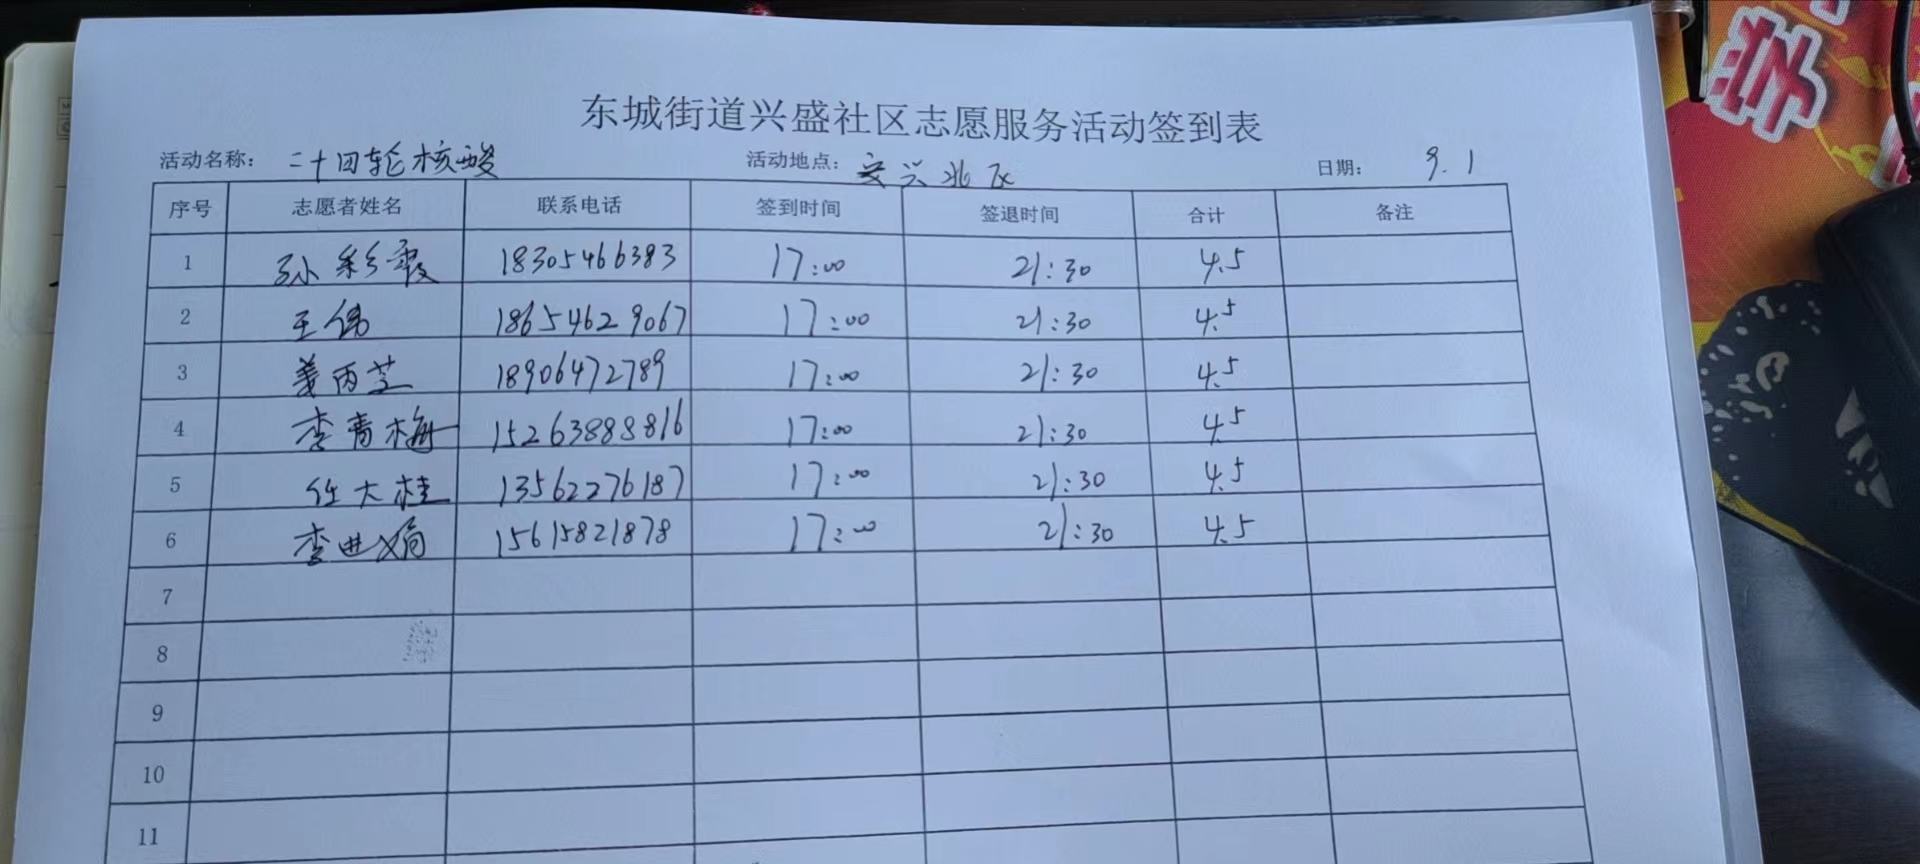 东城街道兴盛社区志愿服务活动签到表
活动名称: 二十四轮核酸 活动地点: 安兴北区 日期: 9.1
序号 志愿者姓名 联系电话 签到时间 签退时间 合计 备注
1 孙彩霞 18305466383 17:00 21:30 4.5
2 王伟 18654629067 17:00 21:30 4.5
3 姜丙芝 18906472789 17:00 21:30 4.5
4 李青梅 15263888816 17:00 21:30 4.5
5 任大桂 13562276187 17:00 21:30 4.5
6 李进娟 15615821878 17:00 21:30 4.5
7
8
9
10
11
学